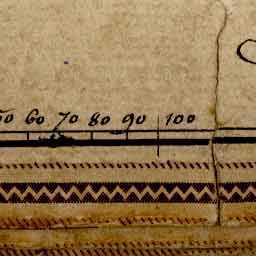 60 70 80 90 100